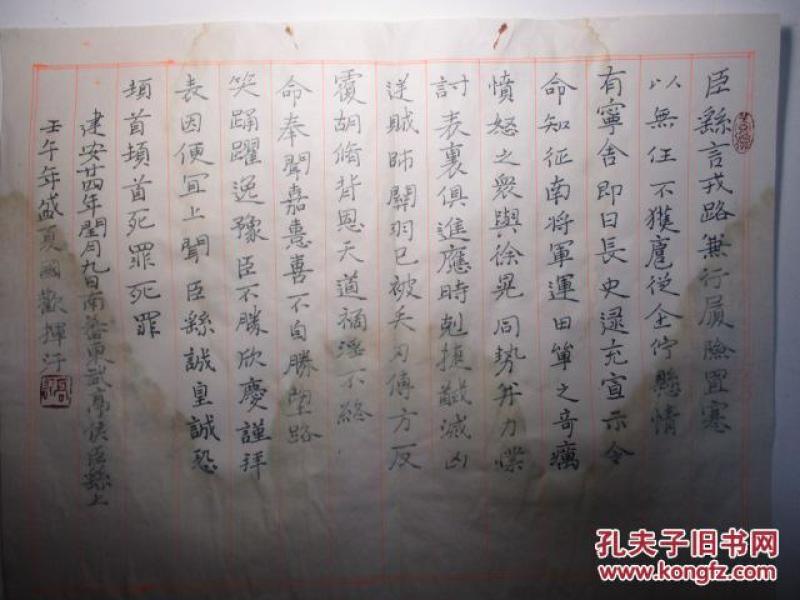 臣繇言戎路兼行履險冒寒
以無任不獲扈從企佇懸情
有寧舍即日長史逯充宣示令
命知征南將軍運田單之奇厲
憤怒之眾與徐晃同勢并力撲
討表裏俱進應時剋捷馘滅凶
逆賊帥關羽已被矢刃傅方反
覆胡脩背恩天道禍淫不終
命奉聞嘉憙喜不自勝望路
笑踊躍逸豫臣不勝欣慶謹拜
表因便宜上聞臣繇誠皇誠恐
頓首頓首死罪死罪
建安廿四年閏月九日南蕃東武亭侯臣繇上
壬午年盛夏國歡揮汗
孔夫子旧书网
www.kongfz.com